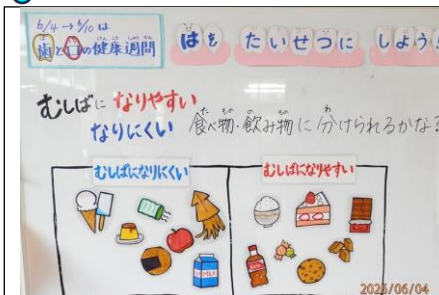 6/4→6/10は
歯と口の健康週間
はを たいせつに しよう!
むしばに なりやすい
なりにくい 食べ物・飲み物に分けられるかなぁ?
た もの の もの わ
むしばになりにくい
むしばになりやすい
MILK
Cola
2025/06/04